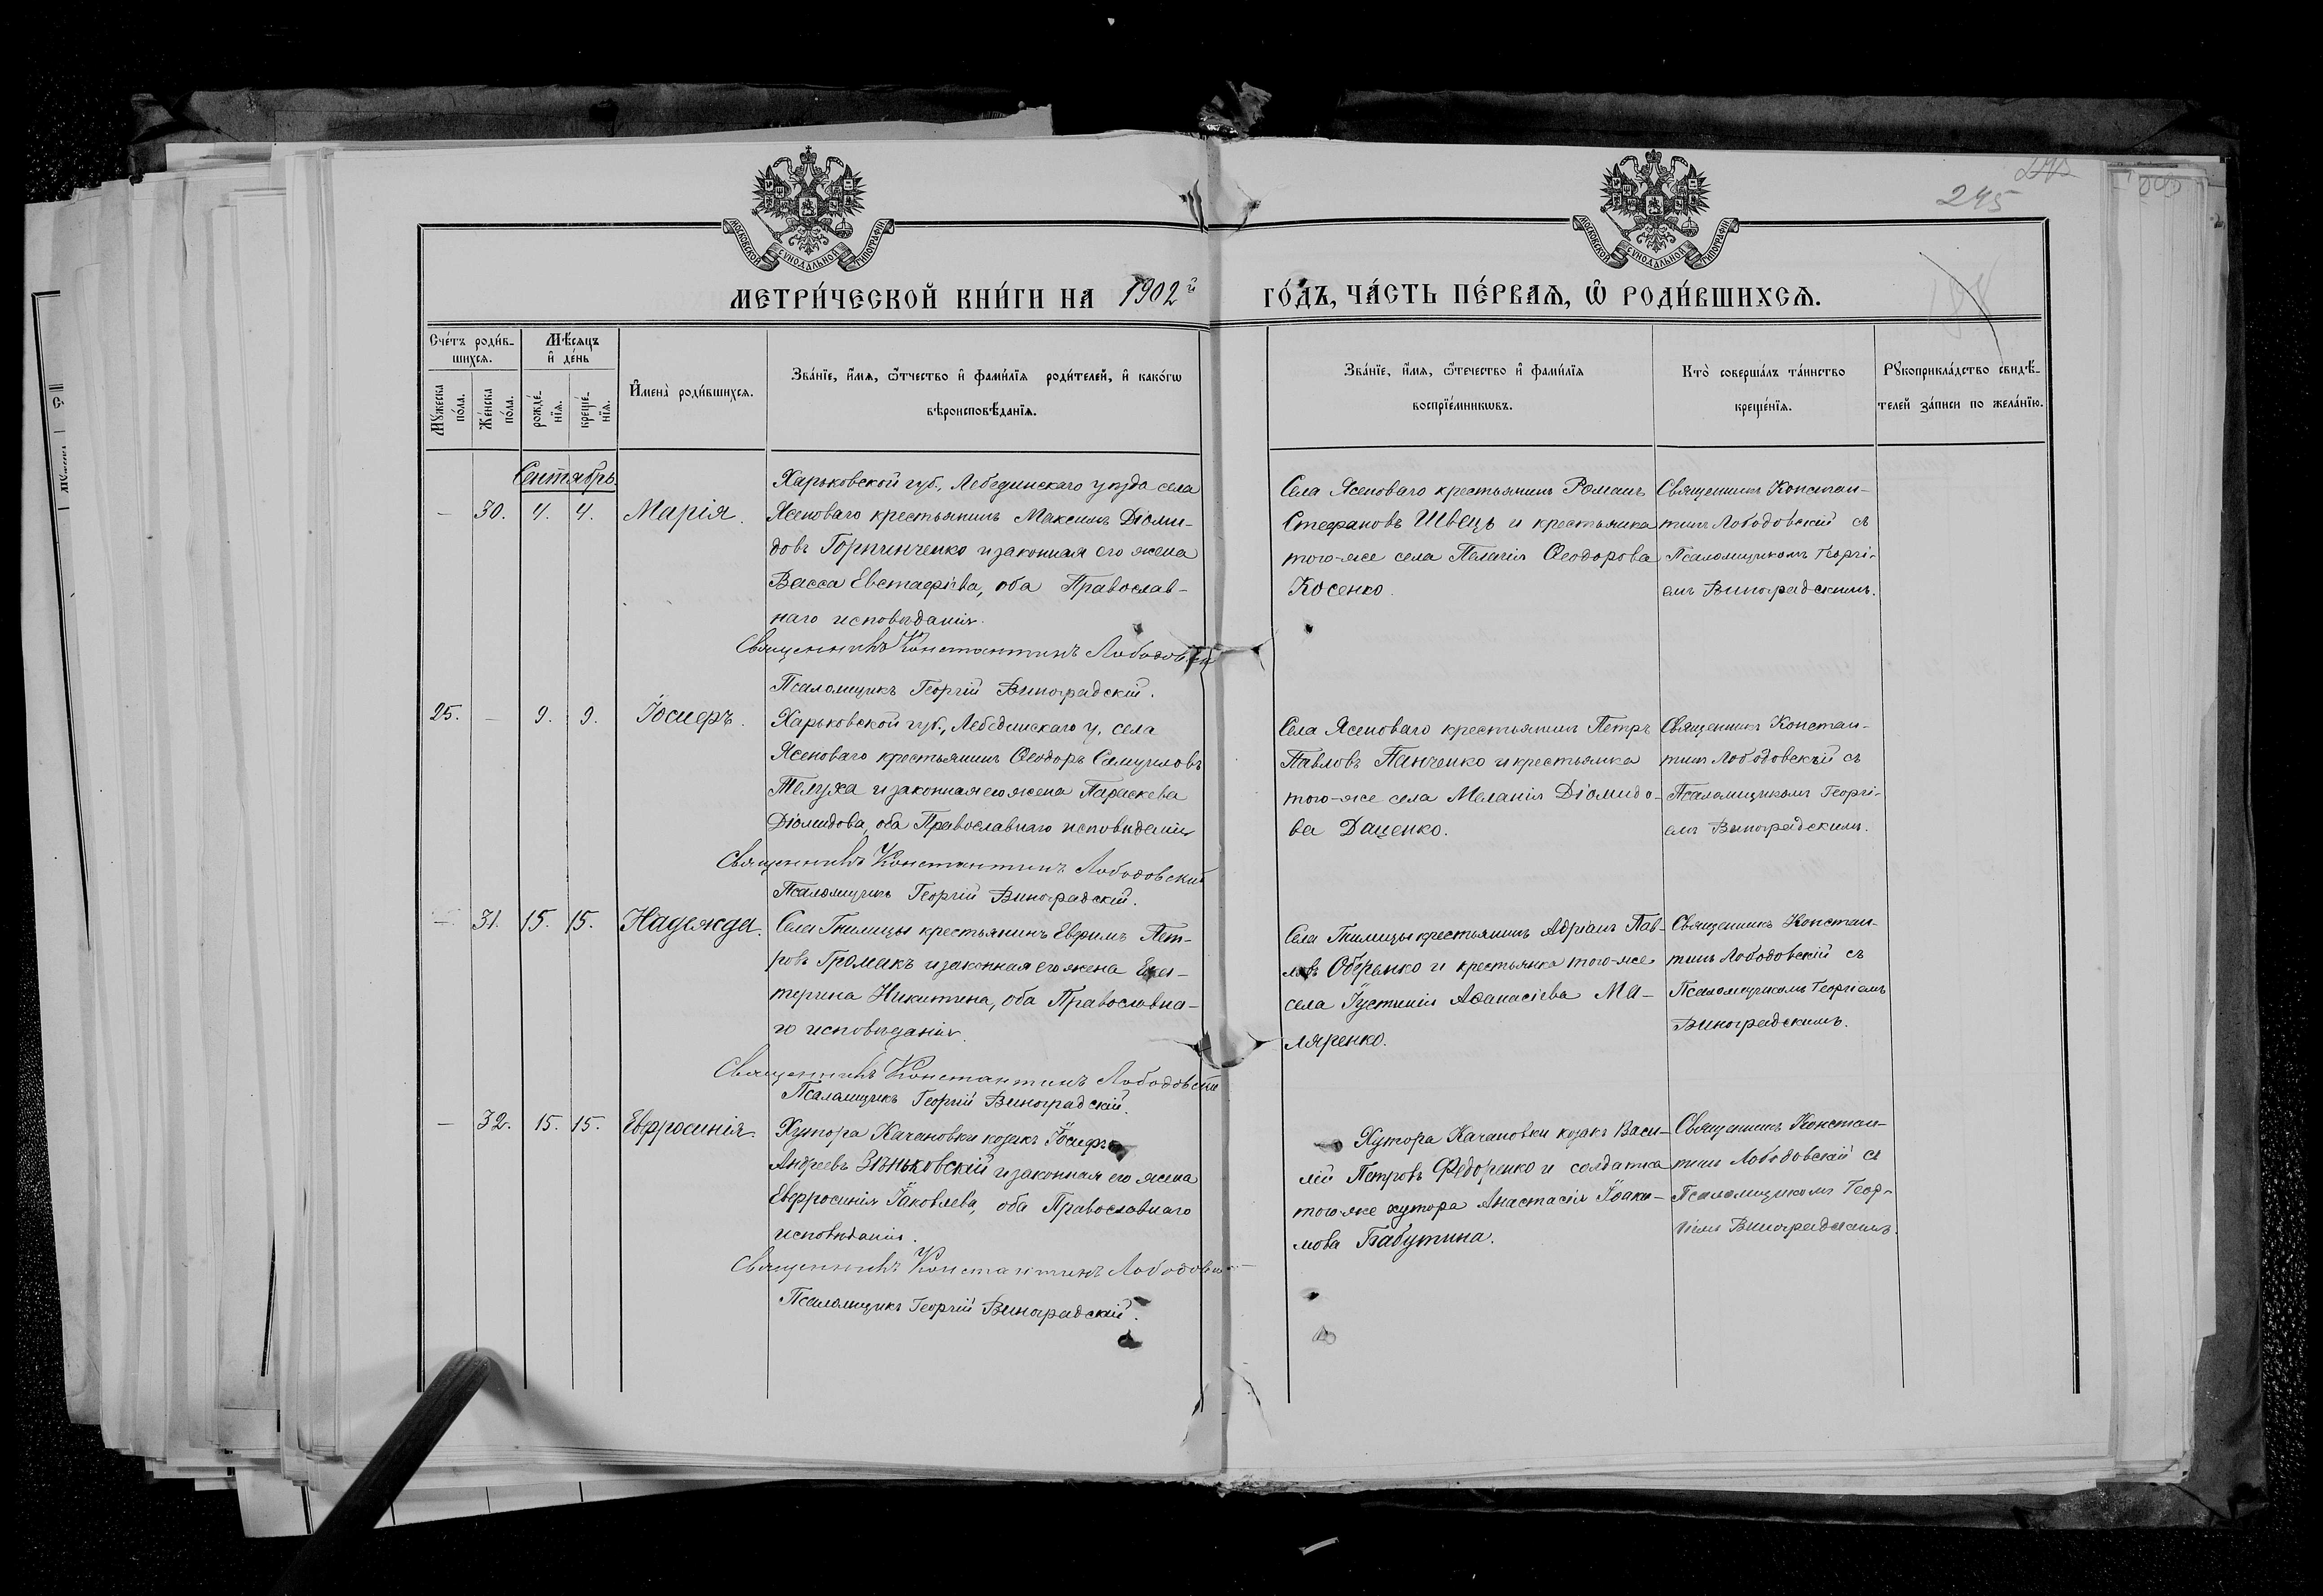 245
МОСКОВСКОЙ СУНОДАЛЬНОЙ ТИПОГРАФІИ
МОСКОВСКОЙ СУНОДАЛЬНОЙ ТИПОГРАФІИ
МЕТРИ́ЧЕСКОЙ КНИ́ГИ НА 1902й ГО́ДЪ, ЧА́СТЬ ПЕ́РВАѦ, Ѡ҆ РОДИ́ВШИХСѦ.
Сче́тъ роди́в-
шихсѧ.
Мꙋжеска по́ла.
Же́нска по́ла.
Мѣ́сѧцъ
и҆ де́нь
рожде́-
нїѧ.
креще́-
нїѧ.
И҆мена̀ роди́вшихсѧ.
Зва́нїе, и҆́мѧ, ѻ҆́тчество и҆ фами́лїѧ роди́телей, и҆ како́гѡ
вѣроисповѣ́данїѧ.
Зва́нїе, и҆́мѧ, ѻ҆́течество и҆ фами́лїѧ
воспрїе́мникѡвъ.
Кто̀ соверша́лъ та́инство
креще́нїѧ.
Рꙋкоприкла́дство свидѣ́-
телей за́писи по жела́нїю.
Сентябрь
— 30. 4. 4. Марія.
Харьковской губ., Лебединскаго уѣзда села
Ясеноваго крестьянинъ Максимъ Діоми-
довъ Горпинченко и законная его жена
Васса Евстафіева, оба Православ-
наго исповѣданія.
Священникъ Константинъ Лободовскій
Псаломщикъ Георгій Виноградскій.
Села Ясеноваго крестьянинъ Романъ
Стефановъ Швецъ и крестьянка
того-же села Пелагія Ѳеодорова
Косенко.
Священникъ Констан-
тинъ Лободовскій съ
Псаломщикомъ Георгі-
емъ Виноградскимъ.
25. — 9. 9. Іосифъ.
Харьковской губ., Лебединскаго у. села
Ясеноваго крестьянинъ Ѳеодоръ Самуиловъ
Телуха и законная его жена Параскева
Діомидова, оба Православнаго исповѣданія
Священникъ Константинъ Лободовскій
Псаломщикъ Георгій Виноградскій.
Села Ясеноваго крестьянинъ Петръ
Павловъ Панченко и крестьянка
того-же села Меланія Діомидо-
ва Даценко.
Священникъ Констан-
тинъ Лободовскій съ
Псаломщикомъ Георгі-
емъ Виноградскимъ.
— 31. 15. 15. Надежда.
Села Гнилицы крестьянинъ Ефримъ Пет-
ровъ Громакъ и законная его жена Ека-
терина Никитина, оба Православна-
го исповѣданія.
Священникъ Константинъ Лободовскій
Псаломщикъ Георгій Виноградскій.
Села Гнилицы крестьянинъ Адріанъ Пав-
ловъ Оберемко и крестьянка того-же
села Іустинія Аѳанасіева Ма-
ляренко.
Священникъ Констан-
тинъ Лободовскій съ
Псаломщикомъ Георгіемъ
Виноградскимъ.
— 32. 15. 15. Евфросинія.
Хутора Качановки козакъ Іосифъ
Андреевъ Зѣньковскій и законная его жена
Евфросинія Іаковлева, оба Православнаго
исповѣданія.
Священникъ Константинъ Лободовскій
Псаломщикъ Георгій Виноградскій.
Хутора Качановки козакъ Васи-
лій Петровъ Федоренко и солдатка
того-же хутора Анастасія Іоаки-
мова Бабутина.
Священникъ Констан-
тинъ Лободовскій съ
Псаломщикомъ Геор-
гіемъ Виноградскимъ.